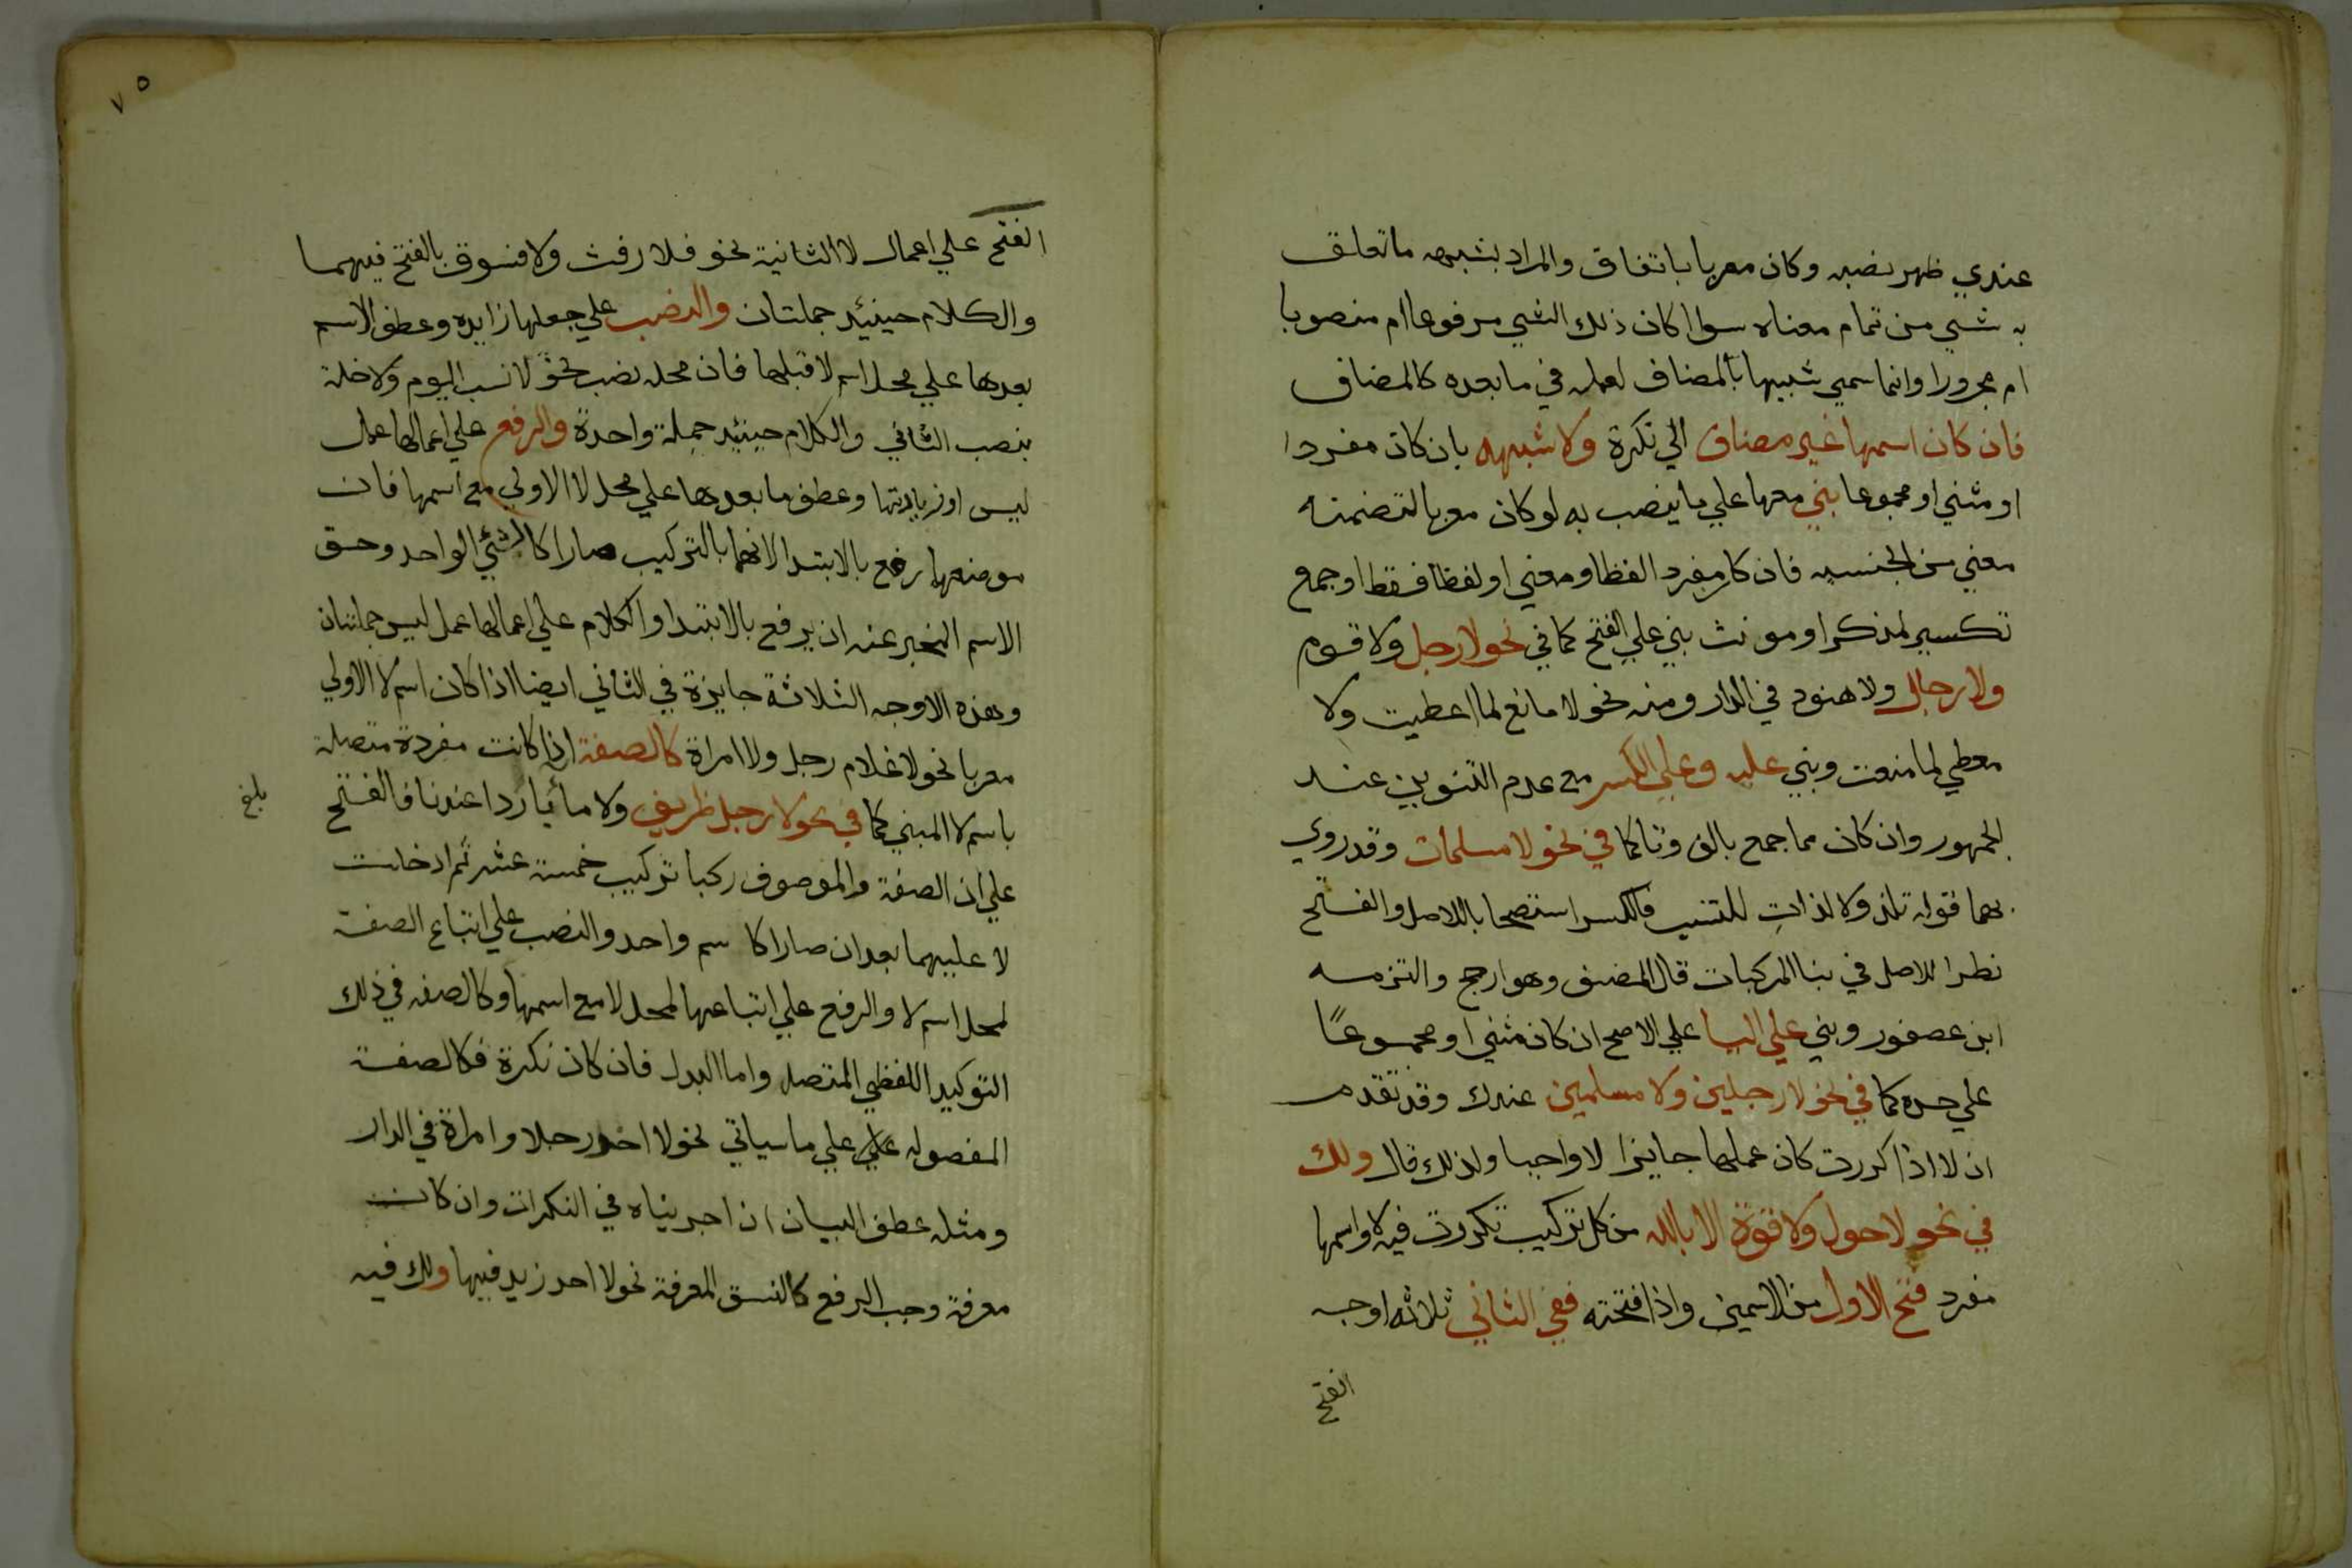 عندي ظهر نصبه وكان معربا باتفاق والمراد بشبهه ما تعلق
به شي من تمام معناه سوا كان ذلك الشي مرفوعا ام منصوبا
ام مجرورا وانما سمي شبيها بالمضاف لعمله في ما بعده كالمضاف
فان كان اسمها غير مضاف الي نكرة ولا شبهه بان كان مفردا
او مثني او مجموعا بني معها علي ما ينصب به لو كان معربا لتضمنه
معني من الجنسيه فان كان مفردا لفظا ومعني او لفظا فقط او جمع
تكسير لمذكر او مونث بني علي الفتح كما في نحو لا رجل ولا قوم
ولا رجال ولا هنود في الدار ومنه نحو لا مانع لما اعطيت ولا
معطي لما منعت وبني عليه وعلي الكسر مع عدم التنوين عند
الجمهور وان كان مما جمع بالف وتا كما في نحو لا مسلمات وقد روي
بهما قوله تلذ ولا لذاتِ للشيب فالكسر استصحابا للاصل والفتح
نظرا للاصل في بنا المركبات قال المصنف وهو ارجح والتزمه
ابن عصفور وبني علي اليا علي الاصح ان كان مثني او مجموعًا
علي حده كما في نحو لا رجلين ولا مسلمين عندك وقد تقدم
ان لا اذا كررت كان عملها جايزا لا واجبا ولذلك قال ولك
في نحو لا حول ولا قوة الا بالله من كل تركيب تكررت فيه لا واسمها
مفرد فتح الاول من الاسمين واذا فتحته ففي الثاني ثلاثه اوجه
الفتح
٧٥
الفتح علي اعمال لا الثانية نحو فلا رفث ولا فسوق بالفتح فيهما
والكلام حينئيد جملتان والنصب علي جعلها زايده وعطف الاسم
بعدها علي محل اسم لا قبلها فان محله نصب نحو لا نسب اليوم ولا خلة
بنصب الثاني والكلام حينئيد جملة واحدة والرفع علي اعمالها عمل
ليس او زيادتها وعطف ما بعدها علي محل لا الاولي مع اسمها فان
موضعها رفع بالابتدا لانهما بالتركيب صارا كالشئي الواحد وحق
الاسم المخبر عنه ان يرفع بالابتدا والكلام علي اعمالها عمل ليس جملتان
وهذه الاوجه الثلاثة جايزة في الثاني ايضا اذا كان اسم لا الاولي
معربا نحو لا غلام رجل ولا امراة كالصفة اذا كانت مفردة متصلة
باسم لا المبني كما في نحو لا رجل ظريف ولا مأ باردا عندنا فالفتح
بلغ
علي ان الصفة والموصوف ركبا تركيب خمسة عشر ثم ادخلت
لا عليهما بعد ان صارا كا سم واحد والنصب علي اتباع الصفة
لمحل اسم لا والرفع علي اتباعها لمحل لا مع اسمها وكالصفه في ذلك
التوكيد اللفظي المتصل واما البدل فان كان نكرة فكالصفة
المفصوله علي ما سياتي نحو لا احد رجلا وامراة في الدار
ومثله عطف البيان ان اجريناه في النكرات وان كانت
معرفة وجب الرفع كالنسق المعرفة نحو لا احد زيد فيها ولك فيه